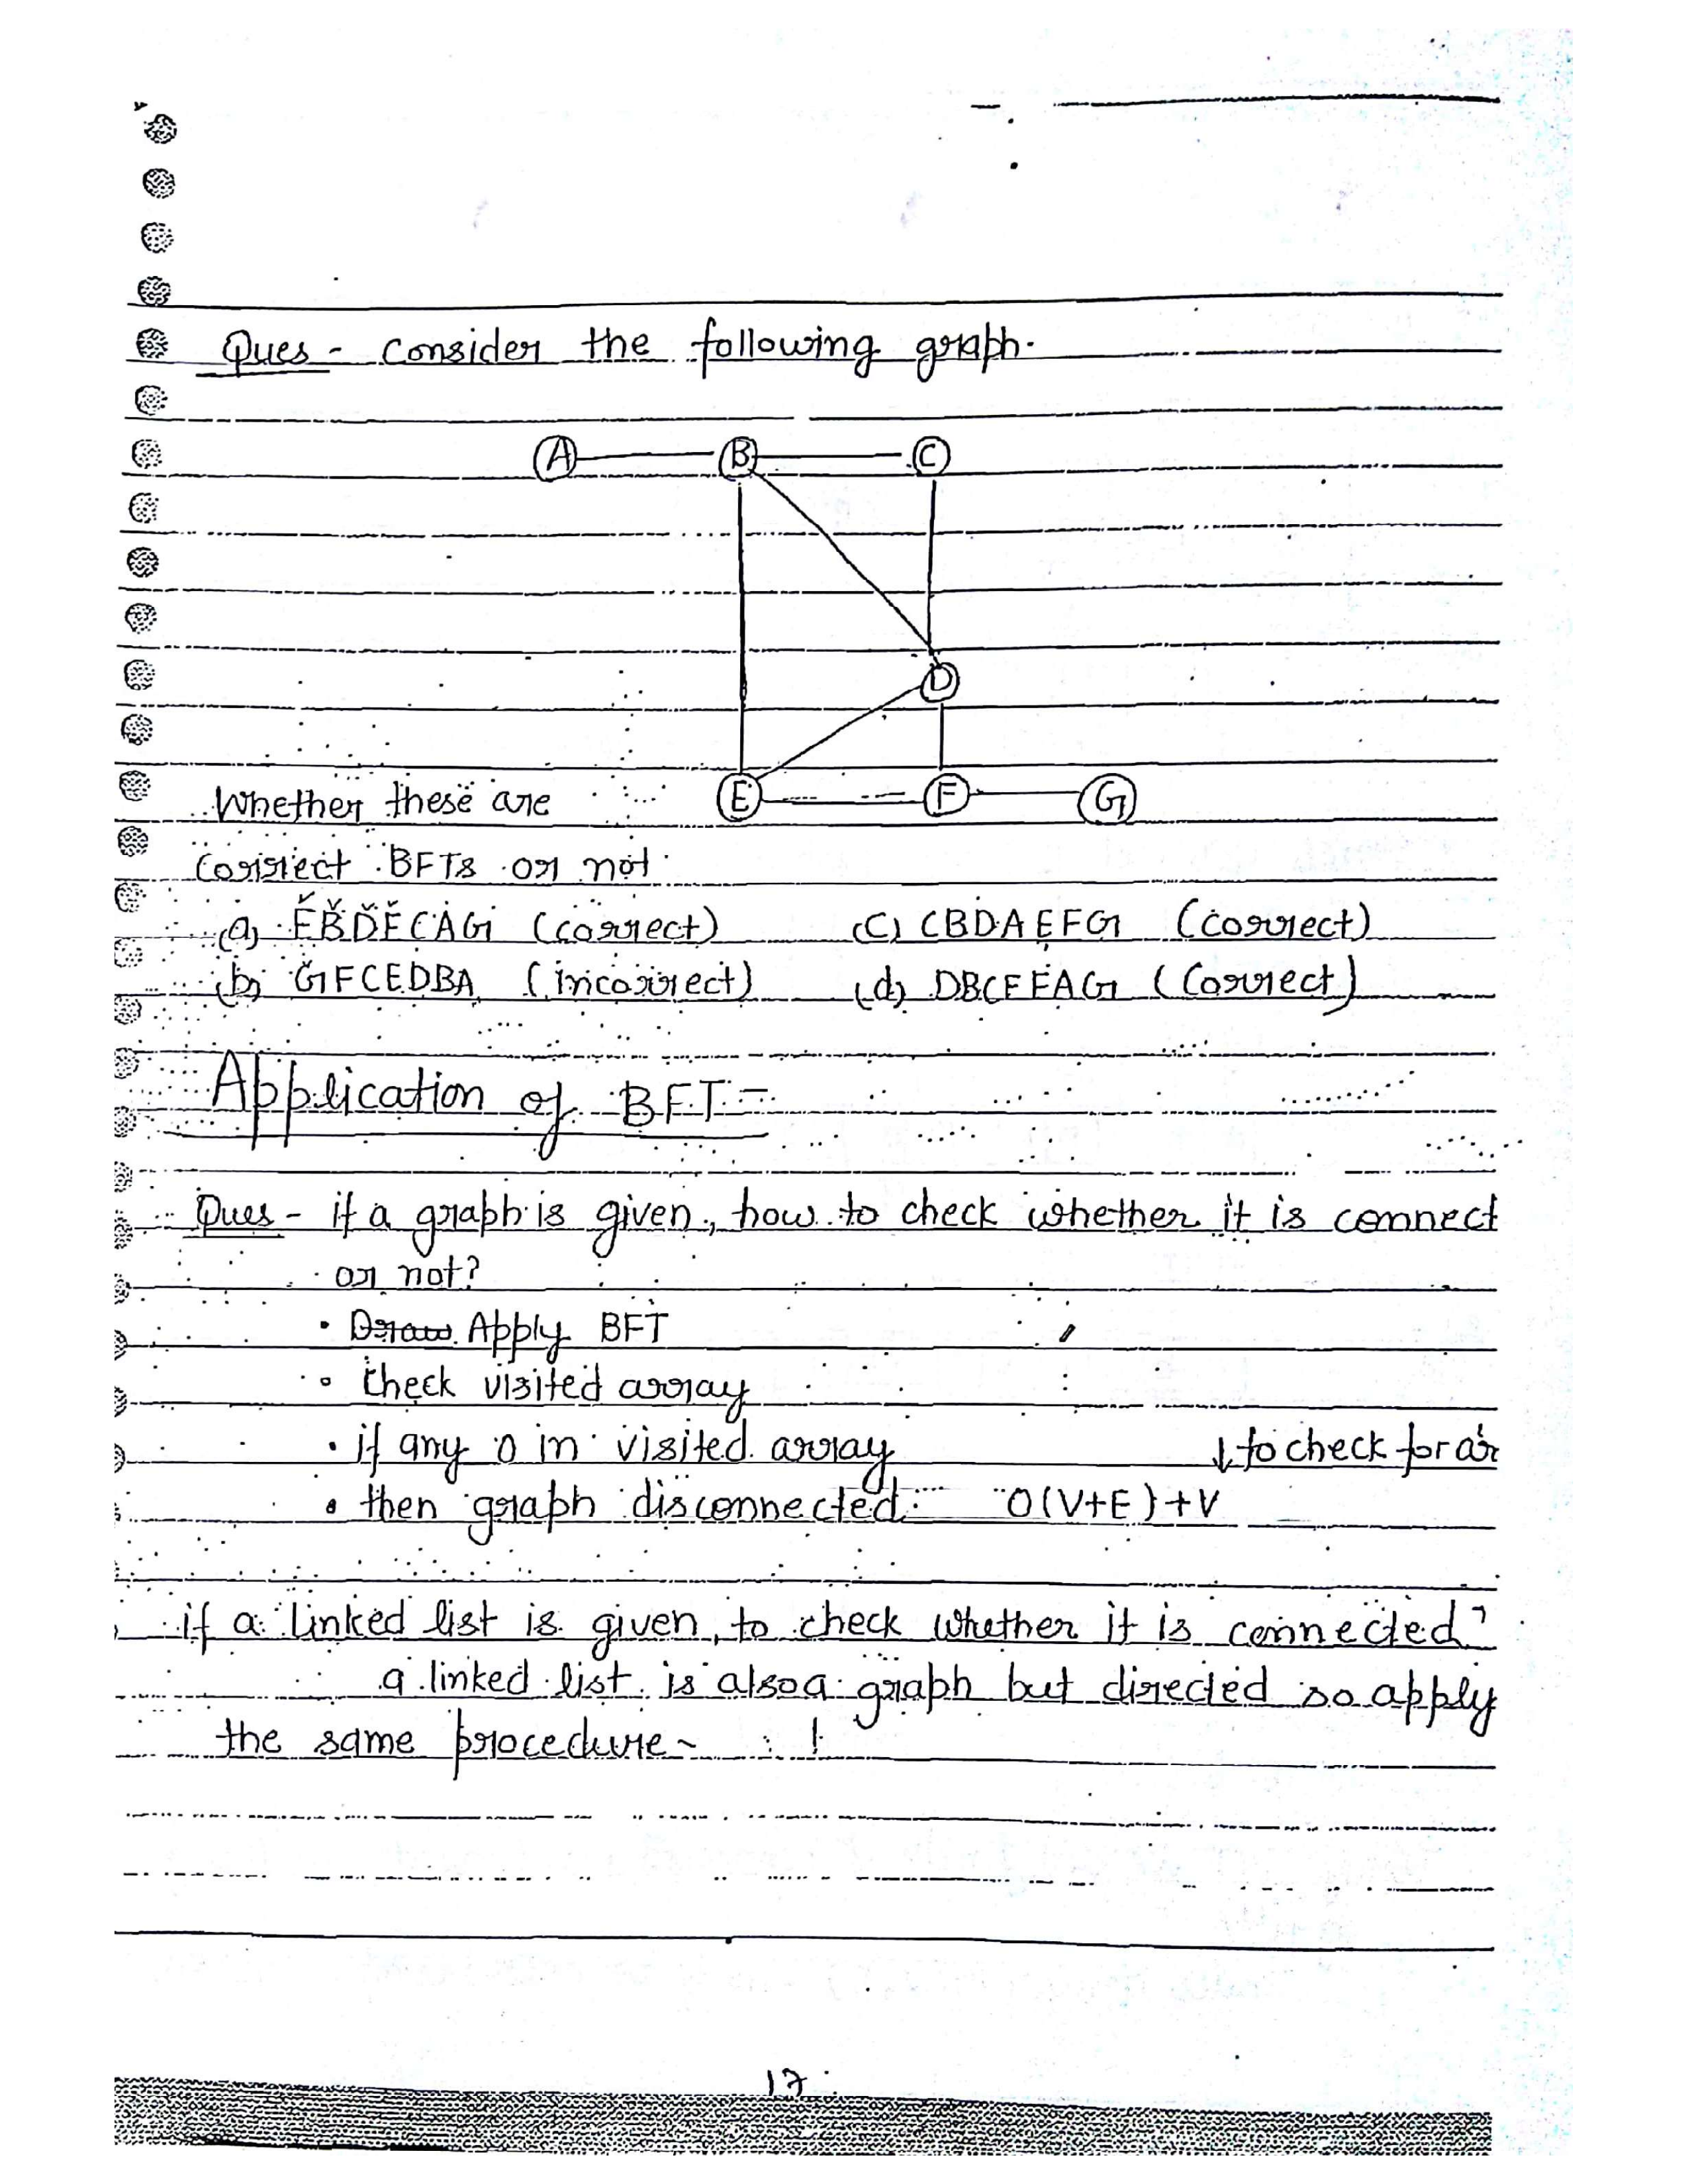 Ques - consider the following graph.
A B C
D
E F G
Whether these are
correct BFTs or not
(a) EBDFCAG (correct) (c) CBDAEFG (correct)
(b) GFCEDBA (incorrect) (d) DBCFEAG (correct)
Application of BFT -
Ques - if a graph is given, how to check whether it is connect
or not?
• Draw Apply BFT
• check visited array
• if any 0 in visited array ↓ to check for
• then graph disconnected. O(V+E)+V
if a linked list is given, to check whether it is connected?
a linked list is also a graph but directed so apply
the same procedure -
17